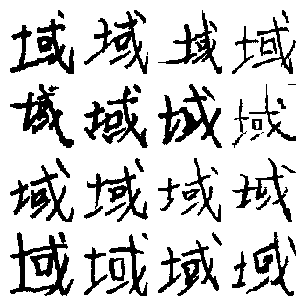 域域域域
域域城域
域域域域
域域域域